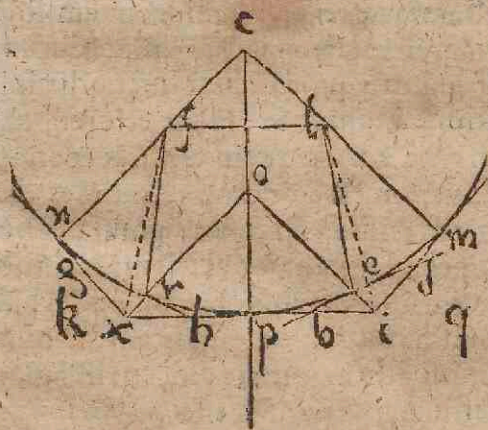 c
f l
o
n m
g r e f
k x h p b i q